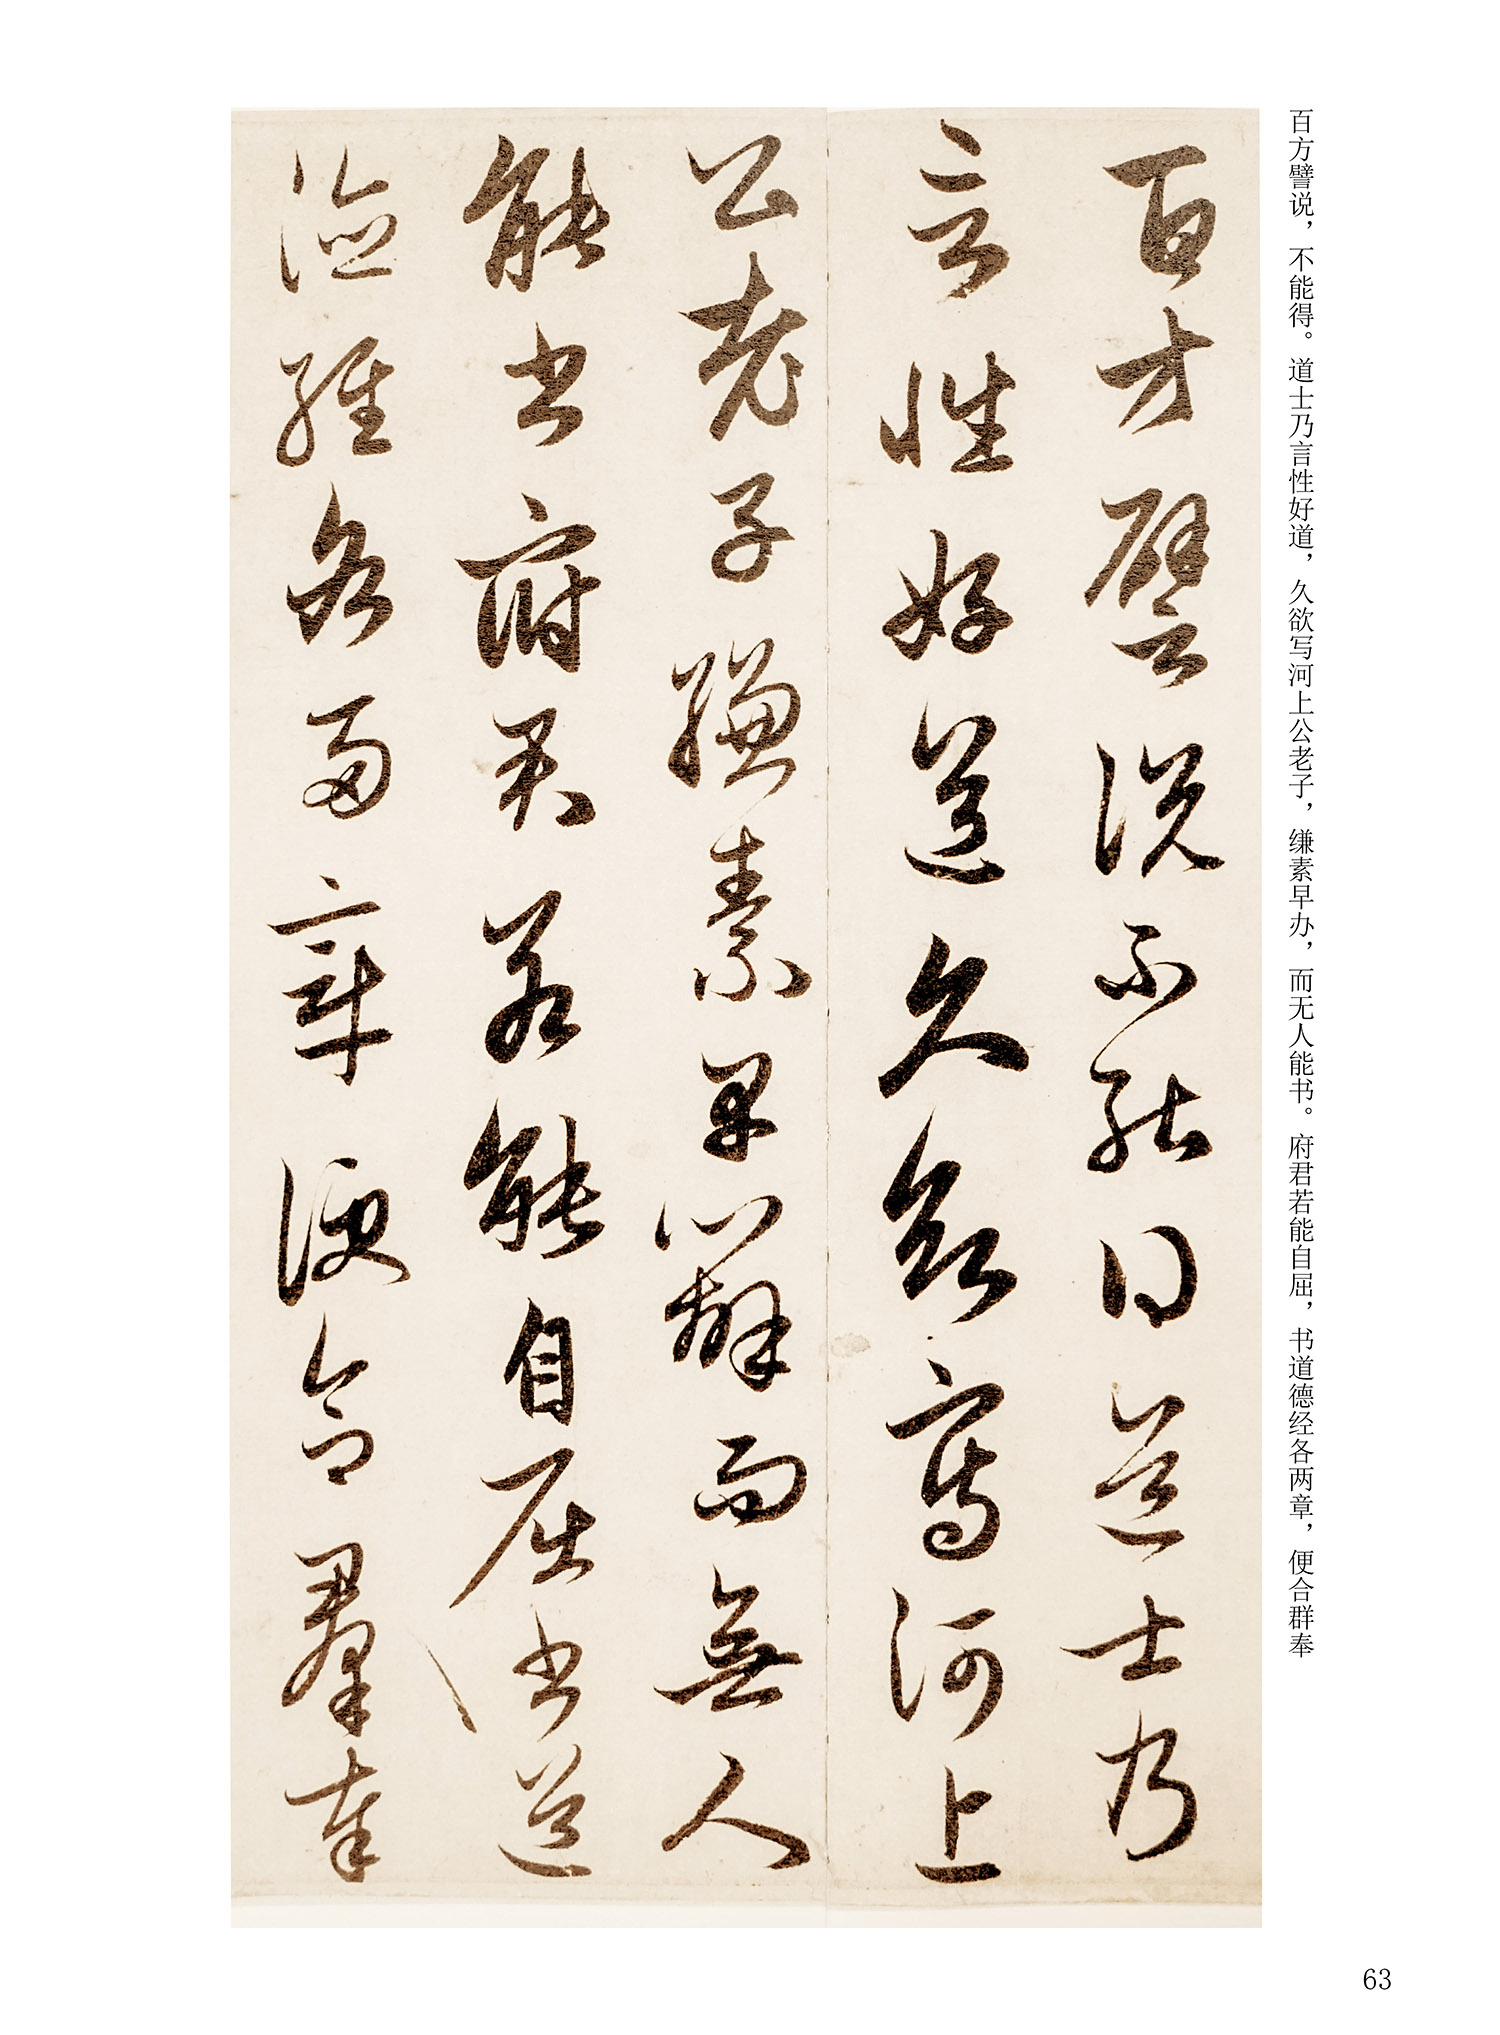 百方譬说，不能得。道士乃言性好道，久欲写河上公老子，缣素早办，而无人能书。府君若能自屈，书道德经各两章，便合群奉
百方譬説不能得道士乃
言性好道久欲寫河上
公老子縑素早辦而無人
能書府君若能自屈書道
德經各兩章便合羣奉
63